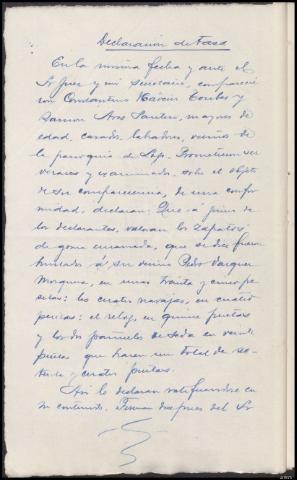 Declaración de Tasa
En la misma fecha y ante el
Sr Juez y mi secretario, comparecie
ron Constantino Núñez y
Ramon Aros Santeiro, mayores de
edad, casados, labradores, vecinos de
la parroquia de Prometieron ser
veraces y examinados, sobre el objeto
de su comparecencia, de una confor
midad, declaran: Que á juicio de
los declarantes, valoran los zapatos
de goma encarnada, que se dice fueron
hurtados á su vecino Pedro Vazquez
Mosquera, en unas treinta y cinco pe
setas: las cuatro navajas, en cuatro
pesetas: el reloj, en quince pesetas
y los dos pañuelos de seda en veinte
pesetas que hacen un total de se-
tenta y cuatro pesetas.
Asi lo declaran ratificandose en
su contenido. Firman despues del Sr